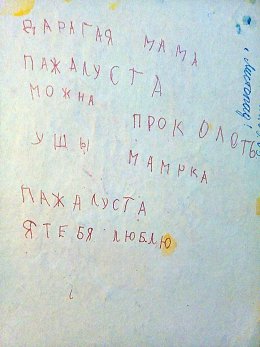 ДАРАГАЯ МАМА
ПАЖАЛУСТА
МОЖНА
ПРОКОЛОТЬ
УШЫ
МАМРКА
ПАЖАЛУСТА
Я ТЕБЯ ЛЮБЛЮ